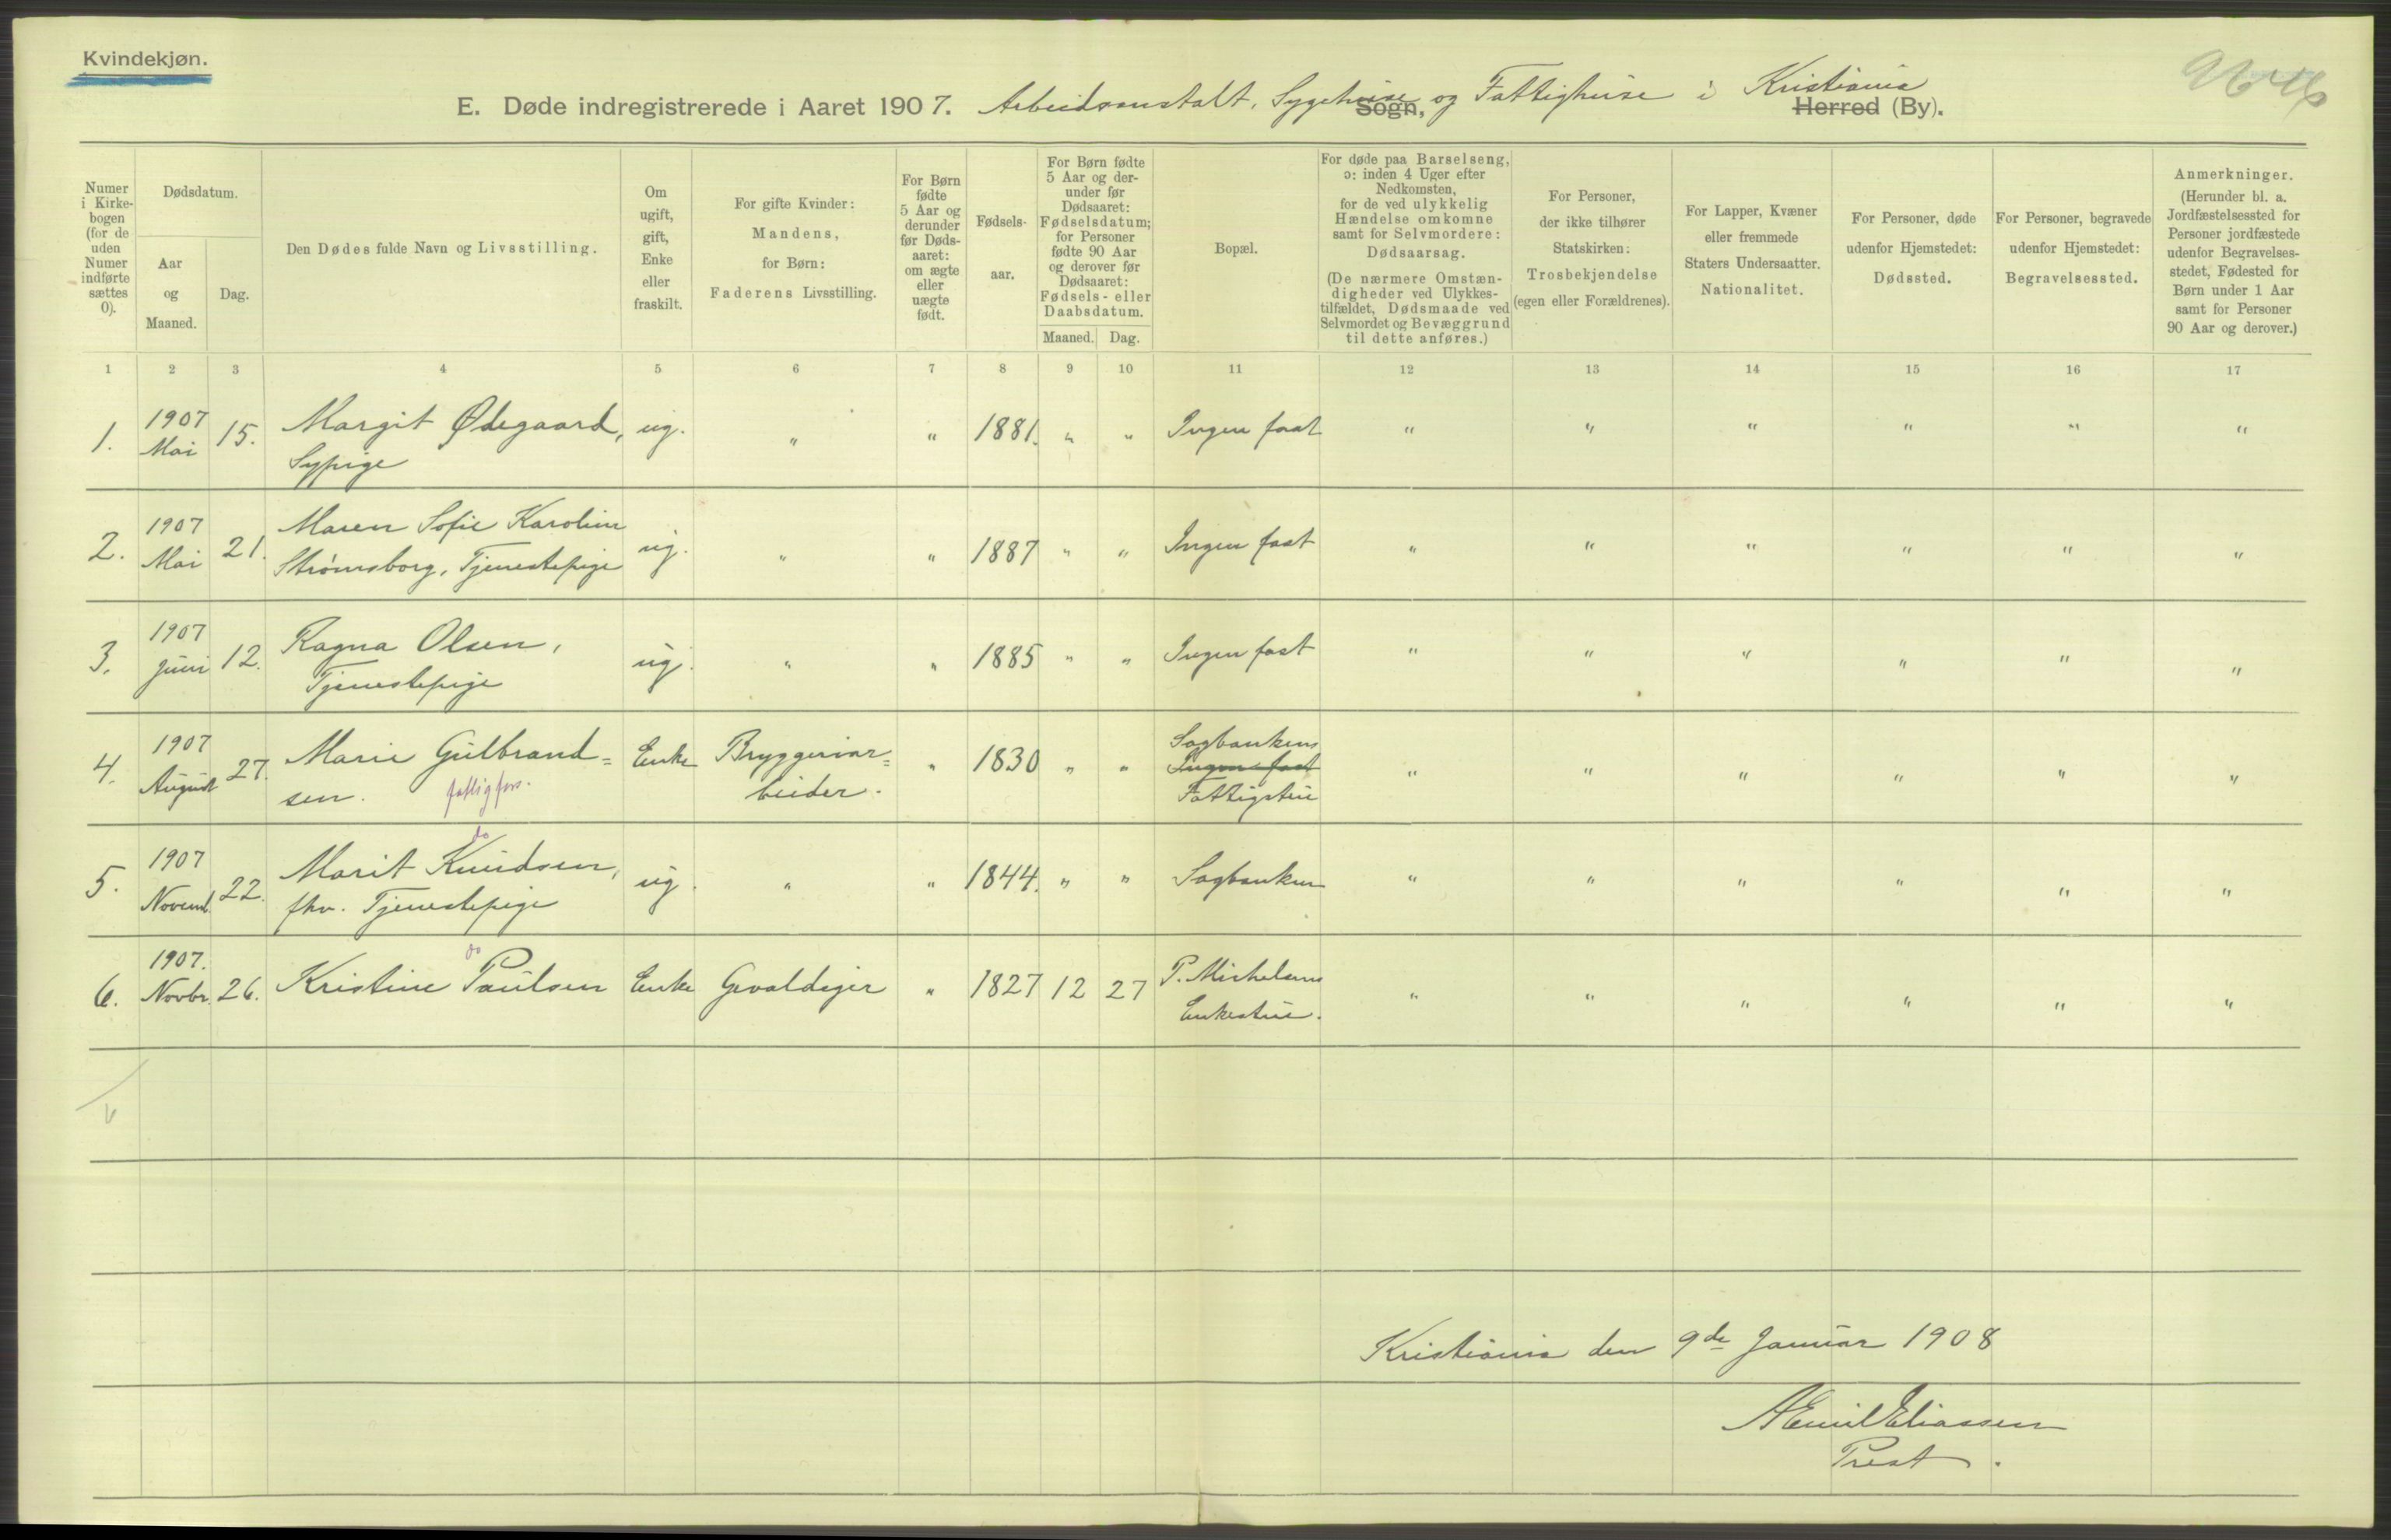 Kvindekjøn.
E. Døde indregistrerede i Aaret 1907. Arbeidsanstalt, Sygehuse og Fattighuse i Kristiania
Sogn, Herred (By).
Numer i Kirkebogen (for de uden Numer indførte sættes 0).
Dødsdatum.
Aar og Maaned.
Dag.
Den Dødes fulde Navn og Livsstilling.
Om ugift, gift, Enke eller fraskilt.
For gifte Kvinder: Mandens, for Børn: Faderens Livsstilling.
For Børn fødte 5 Aar og derunder før Dødsaaret: om ægte eller uægte født.
Fødselsaar.
For Børn fødte 5 Aar og derunder før Dødsaaret: Fødselsdatum; for Personer fødte 90 Aar og derover før Dødsaaret: Fødsels- eller Daabsdatum.
Maaned. Dag.
Bopæl.
For døde paa Barselseng, ɔ: inden 4 Uger efter Nedkomsten, for de ved ulykkelig Hændelse omkomne samt for Selvmordere: Dødsaarsag. (De nærmere Omstændigheder ved Ulykkestilfældet, Dødsmaade ved Selvmordet og Bevæggrund til dette anføres.)
For Personer, der ikke tilhører Statskirken: Trosbekjendelse (egen eller Forældrenes).
For Lapper, Kvæner eller fremmede Staters Undersaatter. Nationalitet.
For Personer, døde udenfor Hjemstedet: Dødssted.
For Personer, begravede udenfor Hjemstedet: Begravelsessted.
Anmerkninger. (Herunder bl. a. Jordfæstelsessted for Personer jordfæstede udenfor Begravelsesstedet, Fødested for Børn under 1 Aar samt for Personer 90 Aar og derover.)
1 2 3 4 5 6 7 8 9 10 11 12 13 14 15 16 17
1. 1907 Mai 15. Margit Ødegaard, Sypige ug. " " 1881. " " Ingen fast " " " " " "
2. 1907 Mai 21. Maren Sofie Karolin Strømsborg, Tjenestepige ug. " " 1887 " " Ingen fast " " " " " "
3. 1907 Juni 12. Ragna Olsen, Tjenestepige ug. " " 1885 " " Ingen fast " " " " " "
4. 1907 August 27. Marie Gulbrand=sen. fattigfors. Enke Bryggeriar=beider. " 1830 " " Sagbankens Ingen fast Fattigstue " " " " " "
5. 1907 Novemb. 22. do Marit Knudsen, fhv. Tjenestepige ug. " " 1844. " " Sagbanken " " " " " "
6. 1907. Novbr. 26. do Kristine Paulsen Enke Gevaldiger " 1827 12 27 P. Michelsens Enkestue. " " " " " "
6
Kristiania den 9de Januar 1908
A Emil Eliassen
Prest.